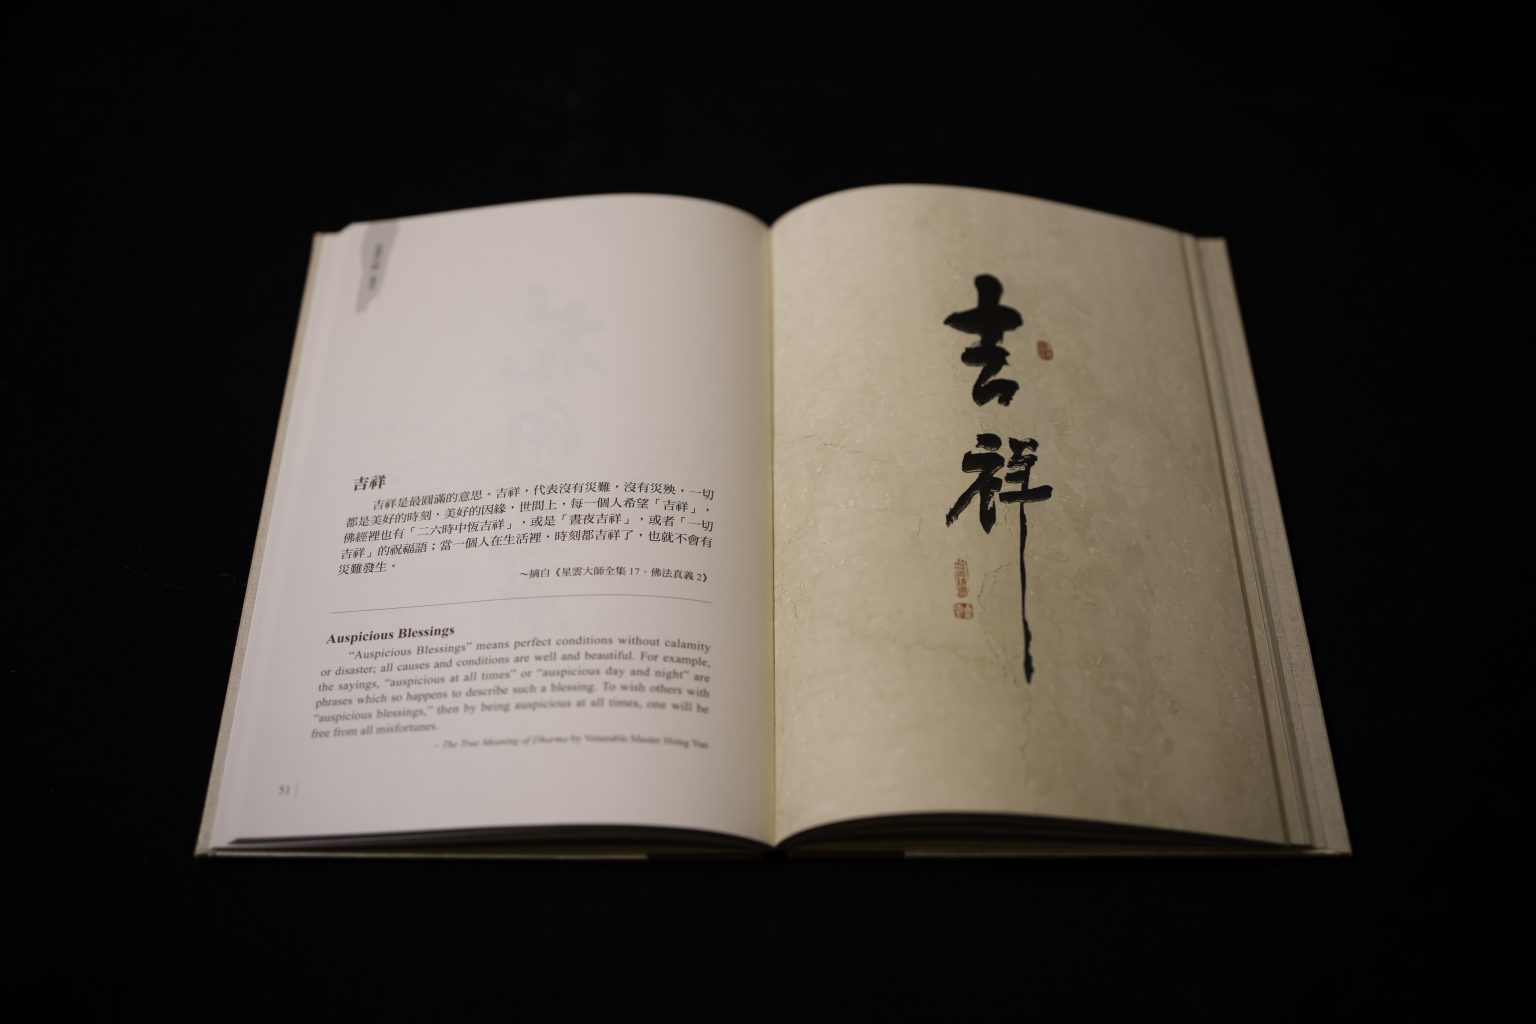 吉祥
吉祥是最圓滿的意思。吉祥，代表沒有災難，沒有災殃，一切
都是美好的時刻，美好的因緣，世間上，每一個人希望「吉祥」，
佛經裡也有「二六時中恆吉祥」，或是「晝夜吉祥」，或者「一切
吉祥」的祝福語；當一個人在生活裡，時刻都吉祥了，也就不會有
災難發生。
～摘自《星雲大師全集 17．佛法真義 2》
Auspicious Blessings
“Auspicious Blessings” means perfect conditions without calamity
or disaster; all causes and conditions are well and beautiful. For example,
the sayings, “auspicious at all times” or “auspicious day and night” are
phrases which so happens to describe such a blessing. To wish others with
“auspicious blessings,” then by being auspicious at all times, one will be
free from all misfortunes.
– The True Meaning of Dharma by Venerable Master Hsing Yun
51
吉祥